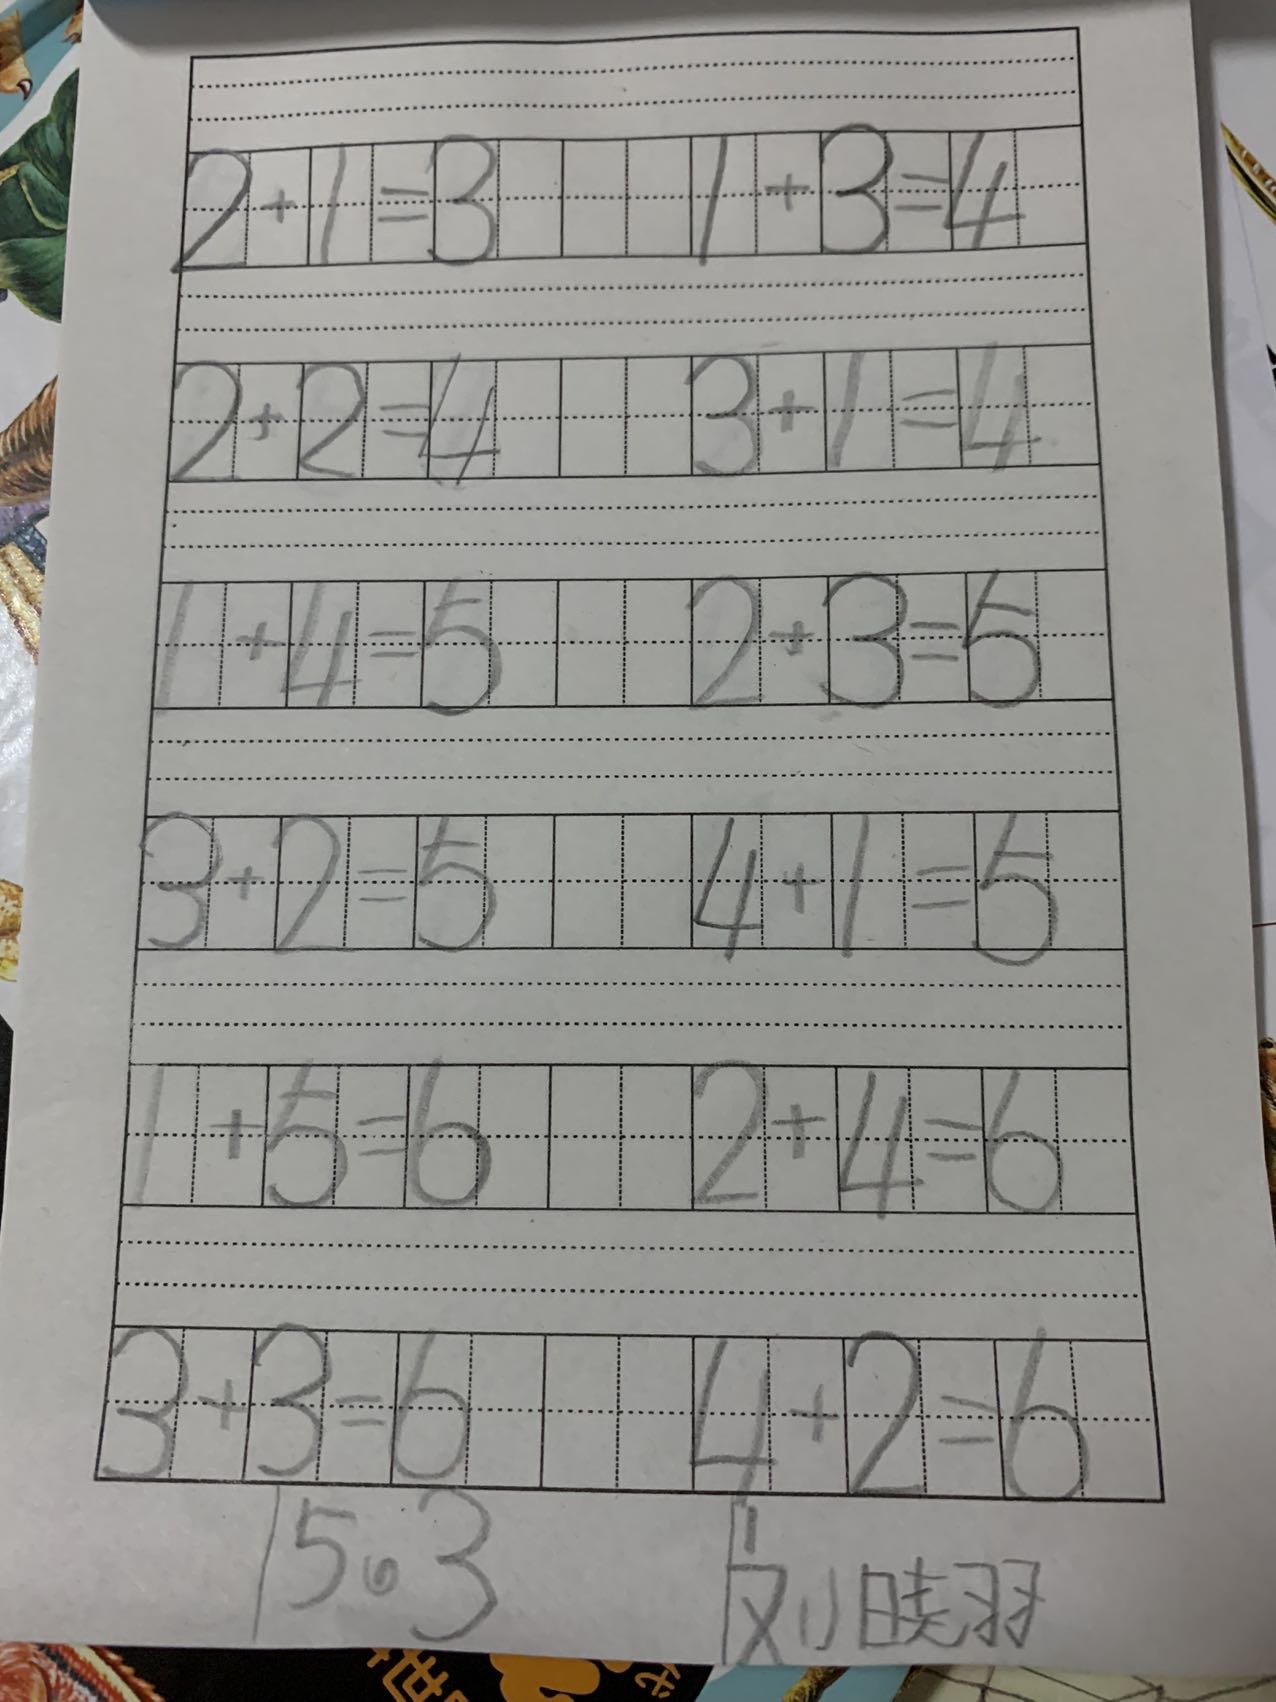 2+1=3 1+3=4
2+2=4 3+1=4
1+4=5 2+3=5
3+2=5 4+1=5
1+5=6 2+4=6
3+3=6 4+2=6
15。3 刘晓羽